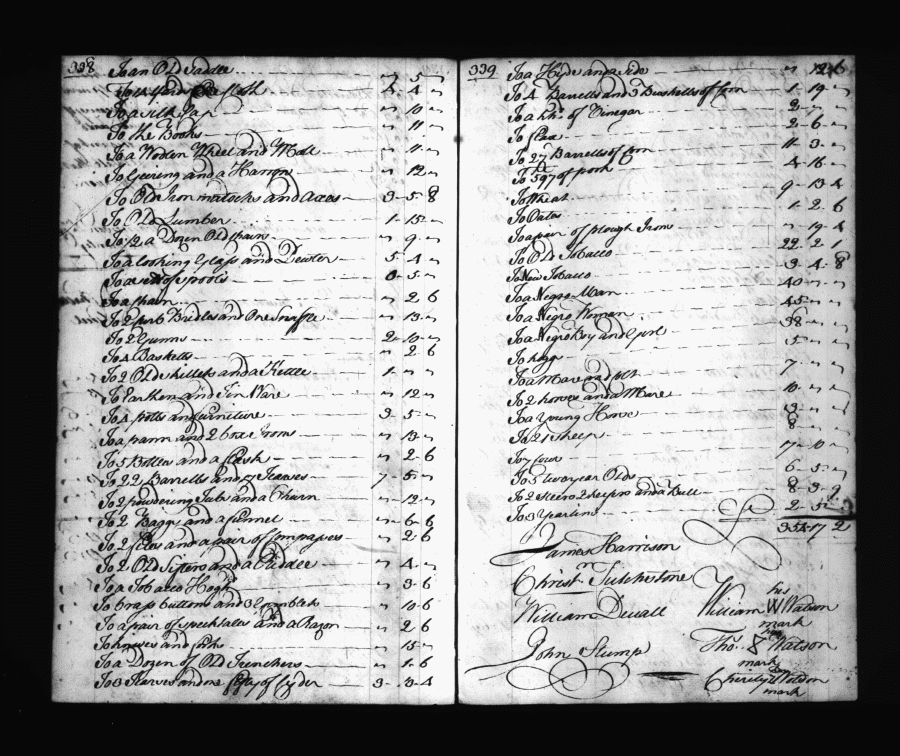 338
To an Old Saddle - - - " - 5 - "
- 4 - "
To a Silk Cap - " - 10 - "
To the Books - " - 11 - "
To a Woden Wheel and Mall - " - 11 - "
To Geering and a Harrow - " - 12 - "
To Old Iron matocks and Axes - 3 - 5 - 8
To Old Lumber - 1 - 15 - "
To 1/2 a Dozen Old Chairs - " - 9 - "
To a looking Glass and Pewter - 5 - 4 - "
To a - 5 - "
To a Chair - " - 2 6
To 2 Bridles and One Snaffle - " - 13 - "
To 2 Gunns - 2 - 10 - "
To 4 Basketts - " - 2 6
To 2 Old Skillets and a Kettle - 1 - " - "
To Earthen and Tin Ware - " - 12 - "
To 4 potts and furniture - 3 - 5 - "
To a pann and 2 box Irons - " - 13 - "
To 5 Bottles and a Cask - " - 2 6
To 22 Barrells and 7 - 7 - 5 - "
To 2 powdering Tubs and a Churn - " - 12 - "
To 2 Baggs and a funnel - " - 6 - 6
To 2 files and a pair of Compasses - " - 2 6
To 2 Old Sifters and a Riddle - " - 4 - "
To a Tobacco Hogh - " - 3 - 6
To brass buttons and 3 Gimblets - " - 10 6
To a pair of Specktales and a Razor - " - 2 6
To knives and fork - " - 15 - "
To a Dozen of Old Trenchers - " - 1 - 6
To 3 and of Cyder - 3 - 3 - 4
339
To a Hyde and a Side - " - 12 6
To 4 Barrells and 3 Bushells of Corn - 1 - 19 - "
To a hhd. of Vinegar - 2 - " - "
To - 2 - 6 - "
To 27 Barrells of Corn - 11 - 3 - "
To 597 of pork - 4 - 18 - "
To Wheat - 9 - 13 - 4
To Oats - 1 - 2 6
To a pair of plough Irons - " - 19 - 4
To Old Tobacco - 22 - 2 1
To New Tobacco - 3 - 4 - 8
To a Negro Man - 40 - " - "
To a Negro Woman - 45 - " - "
To a Negro Boy and Girl - 38 - " - "
To hogg - 5 - " - "
To a Mare and colt - 7 - " - "
To 2 horses and a Mare - 10 - " - "
To a Young Horse - 13 - " - "
To 21 Sheep - 8 - "
To 7 Cows - 17 - 10 - "
To 5 two year Olds - 6 - 5 - "
To 2 Steers 2 heifers and a Bull - 8 - 3 - 9
To 3 Yearlins - 2 - 5 -
354 - 17 2
James Harrison
Christr. Tutchstone
William Duvall
John Stump
William W Watson
his
mark
Thos. Watson
his
mark
Watson
mark